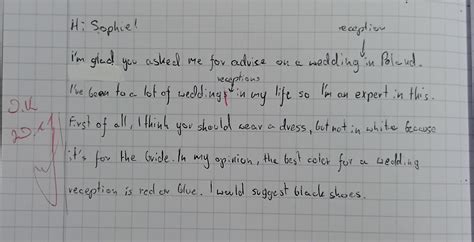 Hi Sophie!
reception
I'm glad you asked me for advise on a wedding in Poland.
receptions
I've been to a lot of wedding in my life so I'm an expert in this.
First of all, I think you should wear a dress, but not in white because
it's for the bride. In my opinion, the best color for a wedding
reception is red or blue. I would suggest black shoes.